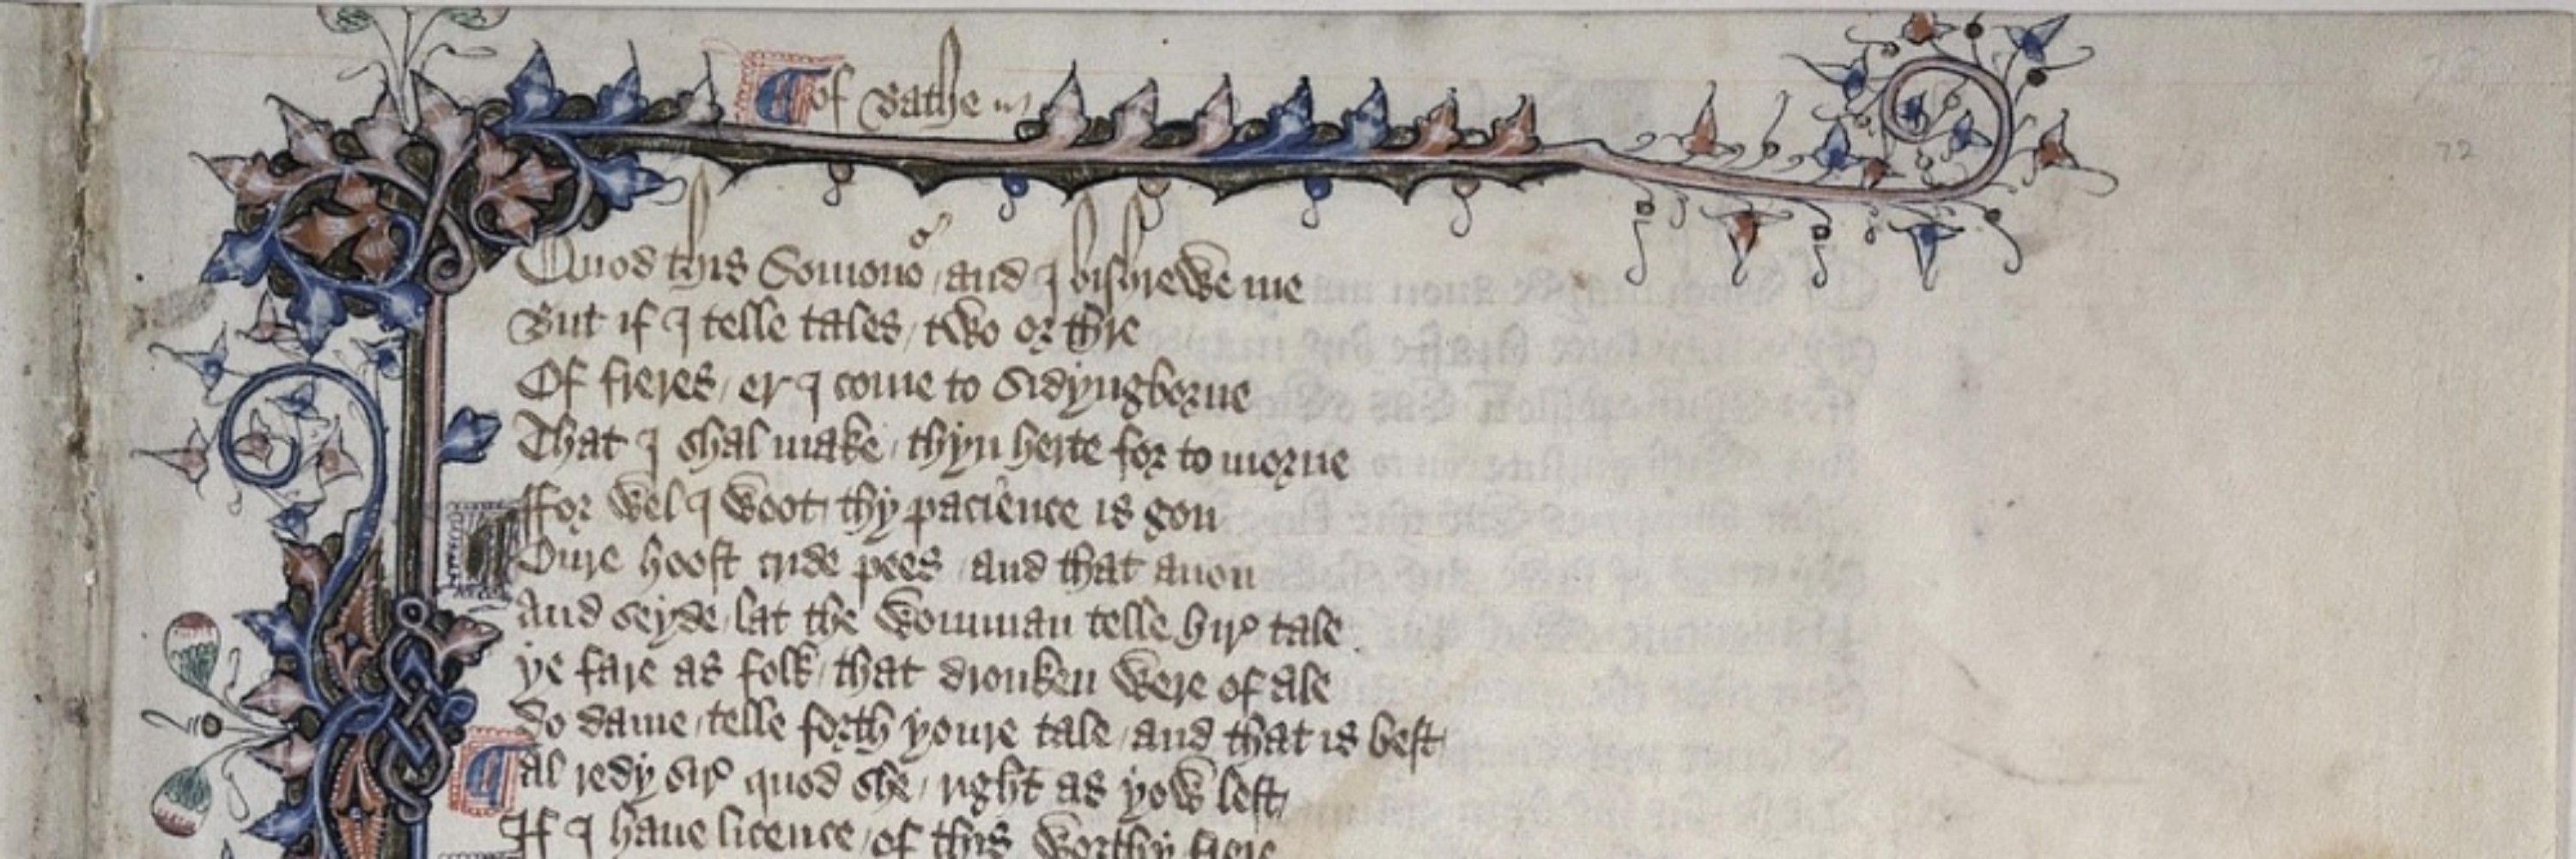 of Bathe
72
Quod this Somonour / and I bishrewe me
But if I telle tales / two or thre
Of freres / er I come to Sidyngborne
That I shal make / thyn herte for to morne
ffor wel I woot / thy pacience is gon
Oure hoost cride pees / and that anon
And seyde / lat the womman telle hire tale
ye fare as folk / that dronken were of ale
Do dame / telle forth youre tale / and that is best
Al redy sire quod she / right as yow lest
If I haue licence / of this worthy frere